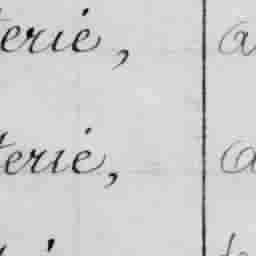 terie, a
terie, a